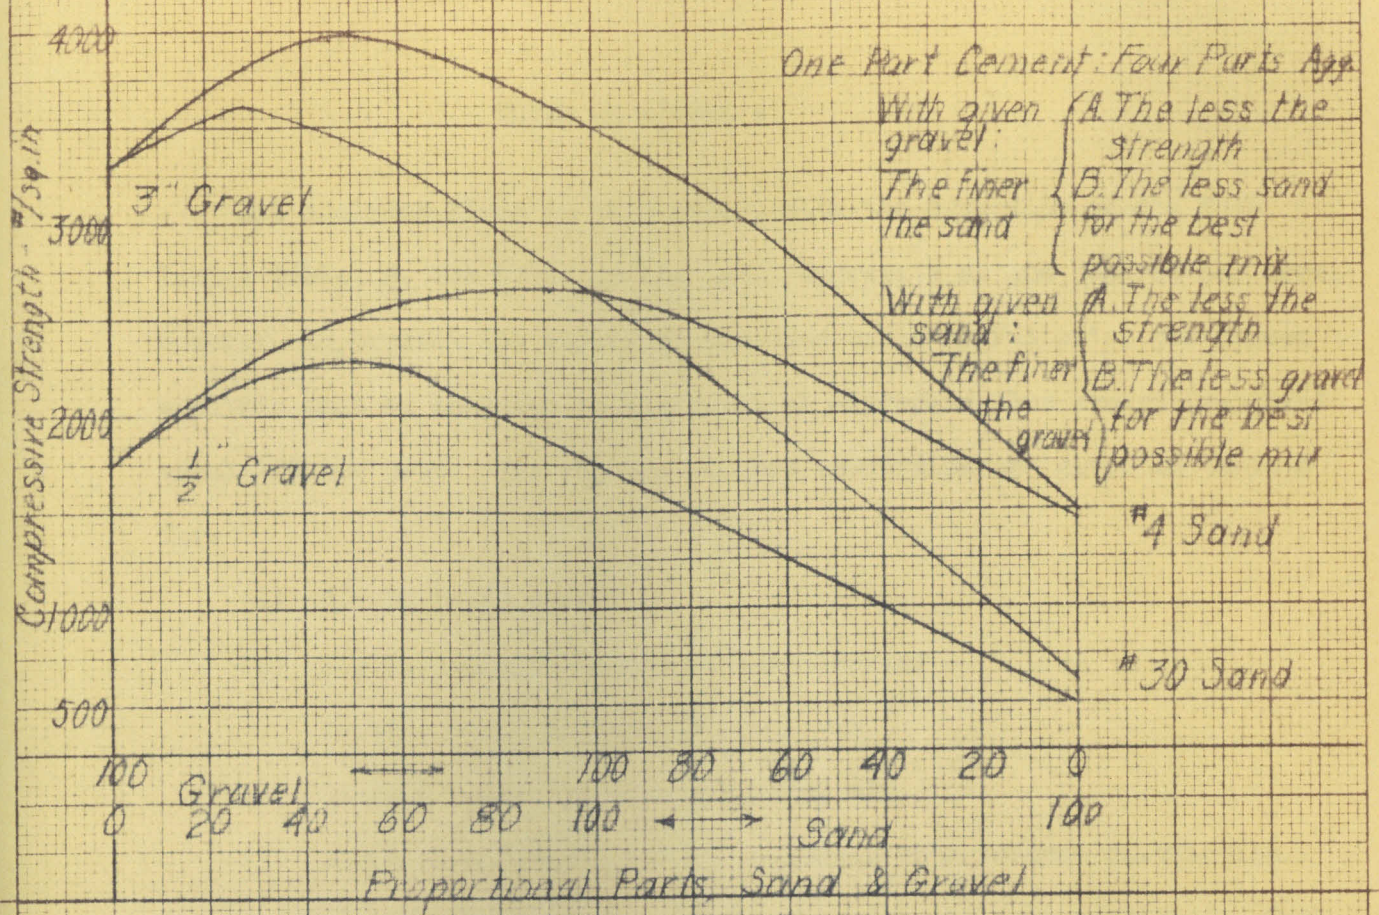 4000
3000
2000
1000
500
Compressive Strength - #/sq.in
One Part Cement : Four Parts Agg.
With given
gravel :
The finer
the sand
A. The less the
strength
B. The less sand
for the best
possible mix.
With given
sand :
The finer
the
gravel
A. The less the
strength
B. The less gravel
for the best
possible mix
3" Gravel
1/2" Gravel
#4 Sand
#30 Sand
100 Gravel 100 80 60 40 20 0
0 20 40 60 80 100 Sand 100
Proportional Parts, Sand & Gravel